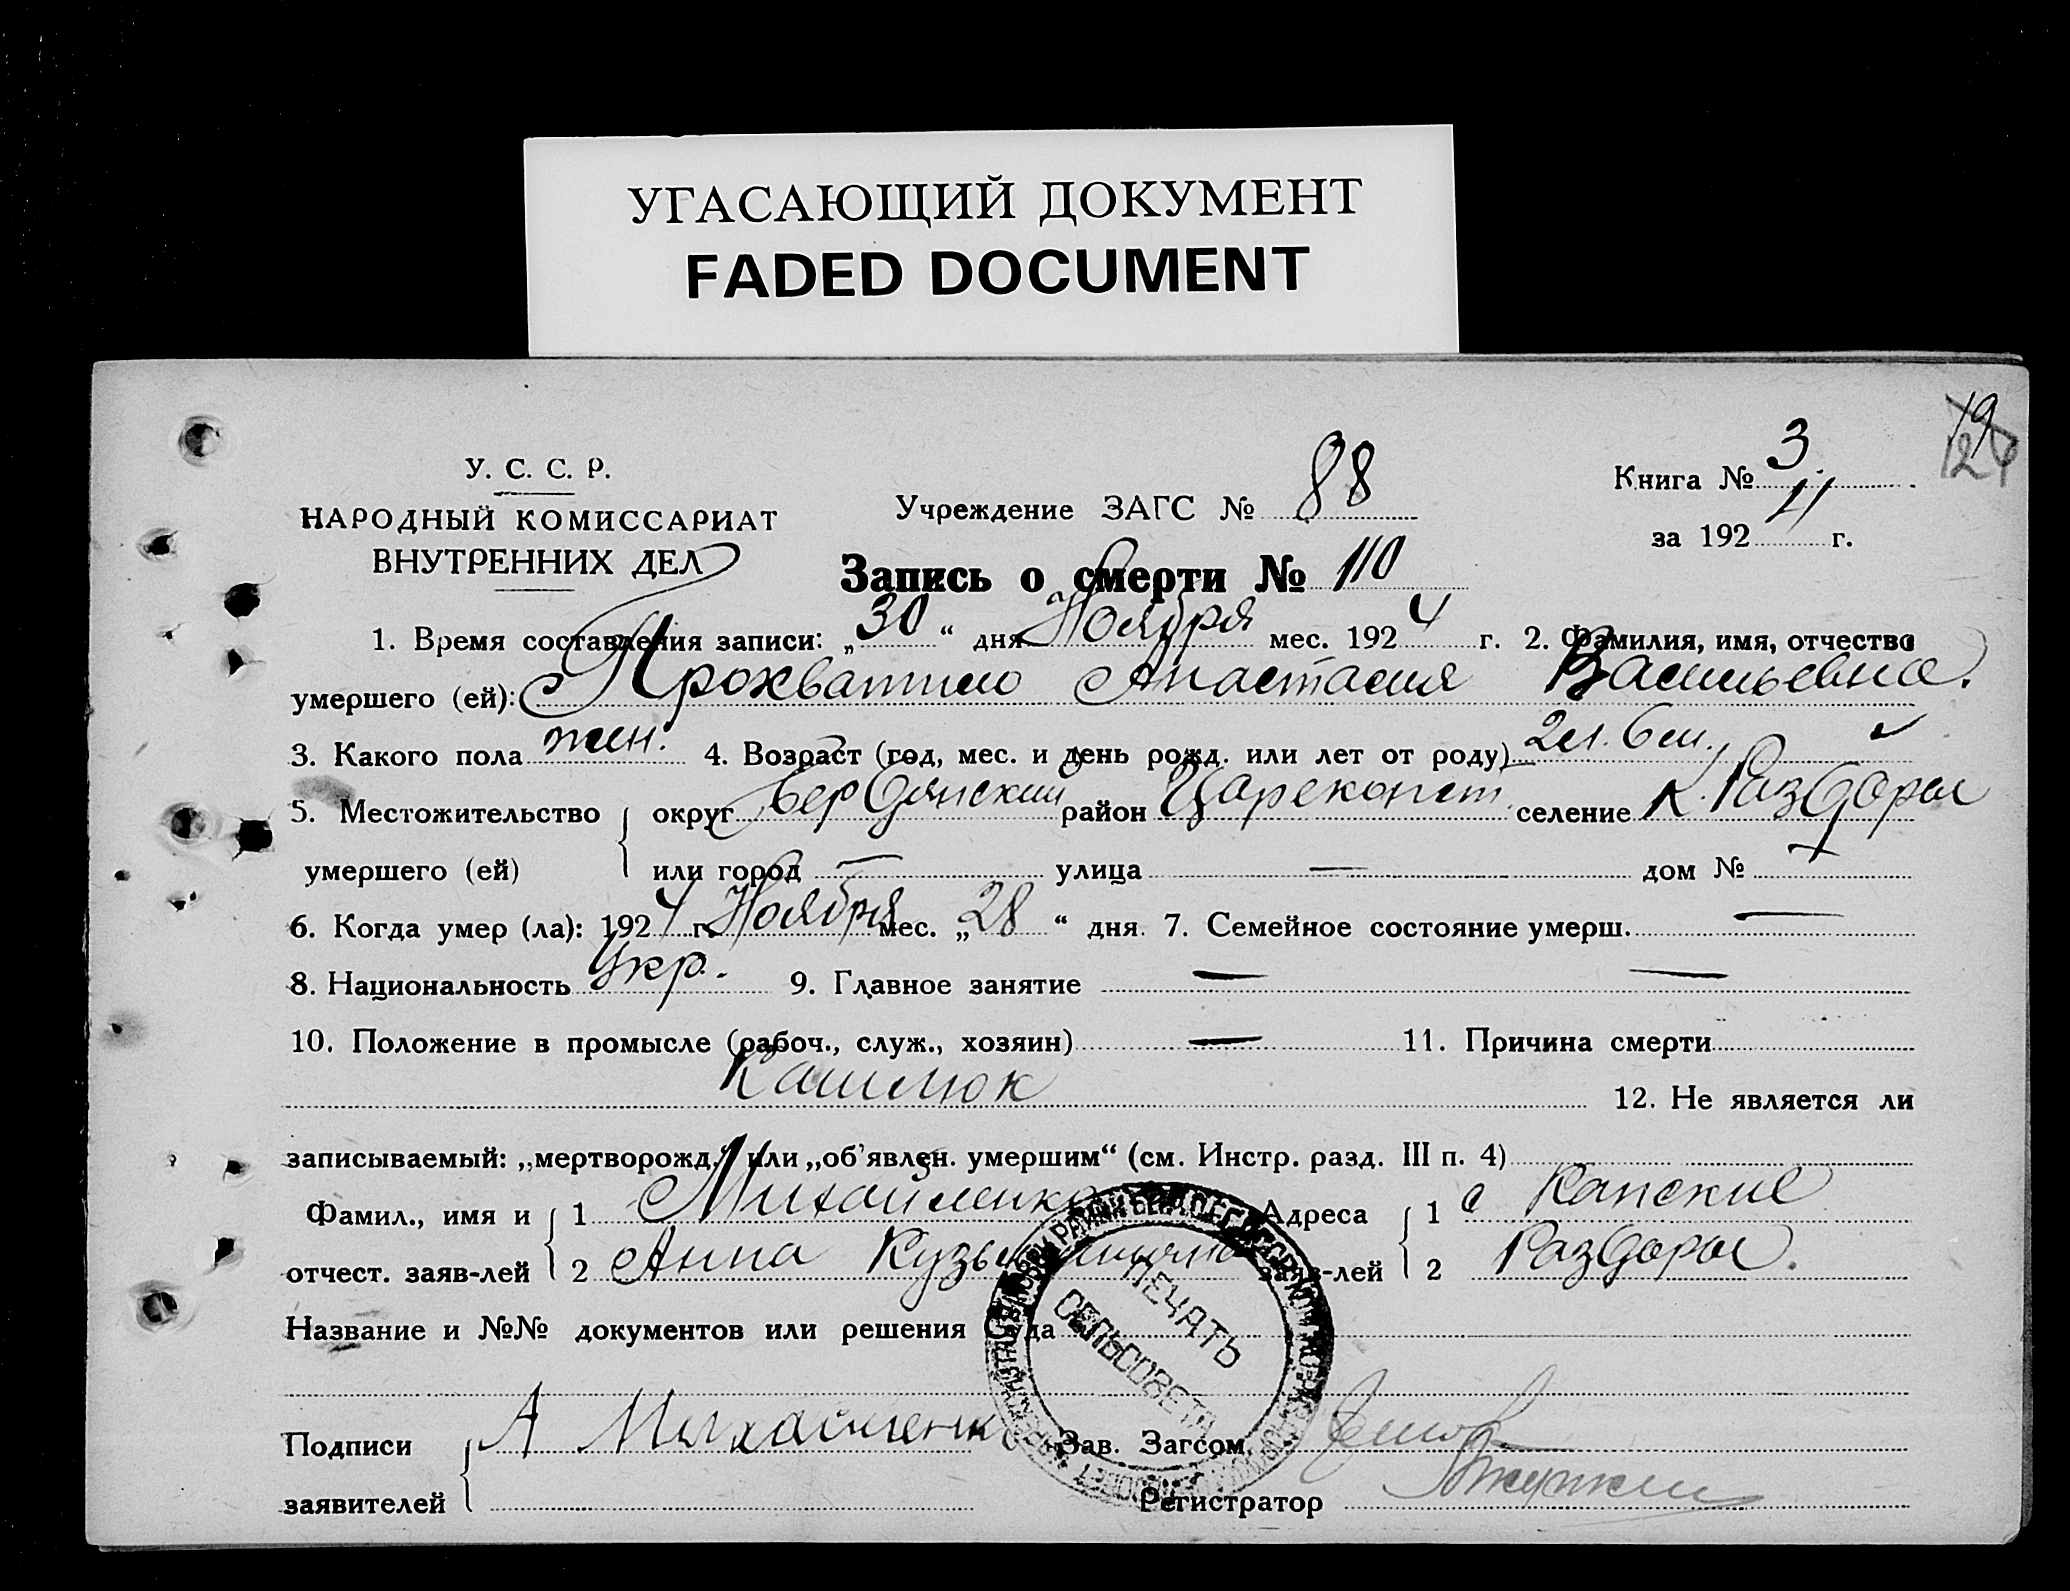 УГАСАЮЩИЙ ДОКУМЕНТ
FADED DOCUMENT
У. С. С. Р.
НАРОДНЫЙ КОМИССАРИАТ
ВНУТРЕННИХ ДЕЛ
Учреждение ЗАГС № 88
Книга № 3
за 192 г.
Запись о смерти № 110
1. Время составления записи: „30“ дня Ноября мес. 1924 г. 2. Фамилия, имя, отчество
умершего (ей): Прохватило Анастасия Васильевна.
3. Какого пола жен. 4. Возраст (год, мес. и день рожд. или лет от роду) 2 л. 6 м.
5. Местожительство округ Бердянский район Цареконст. селение К. Раздоры
умершего (ей) или город — улица — дом №
6. Когда умер (ла): 1924 г. Ноября мес. „28“ дня. 7. Семейное состояние умерш. —
8. Национальность Укр. 9. Главное занятие — —
10. Положение в промысле (рабоч., служ., хозяин) — 11. Причина смерти
Кашлюк
12. Не является ли
записываемый: „мертворожд.“ или „об'явлен. умершим“ (см. Инстр. разд. III п. 4)
Фамил., имя и 1 Михайленко Адреса 1 с Капские
отчест. заяв-лей 2 Анна Кузьминична заяв-лей 2 Раздоры.
Название и №№ документов или решения суда
ПЕЧАТЬ
СЕЛЬСОВЕТА
Подписи А Михайленко Зав. Загсом
заявителей Регистратор